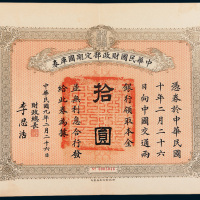 中華民國財政部定期國庫券
憑券於中華民國
十年二月二十六
日向中國交通兩
銀行領取本金
拾圓
正無利息合行發
給此券為據
中華民國九年二月二十六日
財政總長
李思浩